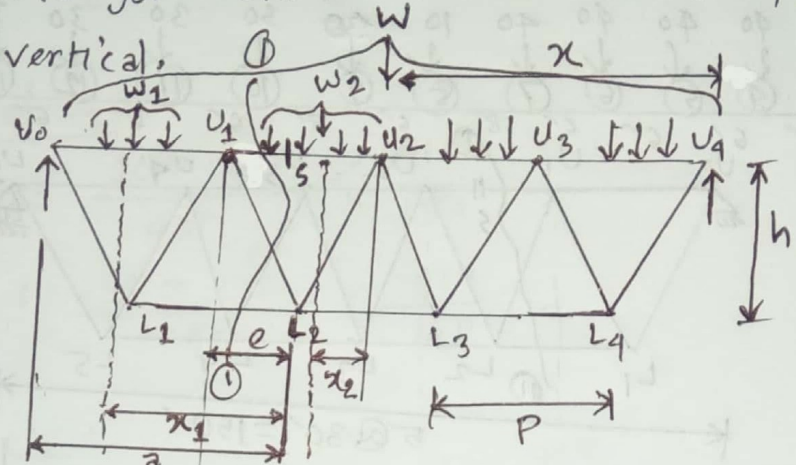 vertical.
① W x
W1 W2
U0 U1 U2 U3 U4
s
h
L1 L2 L3 L4
e
① x2
x1 P